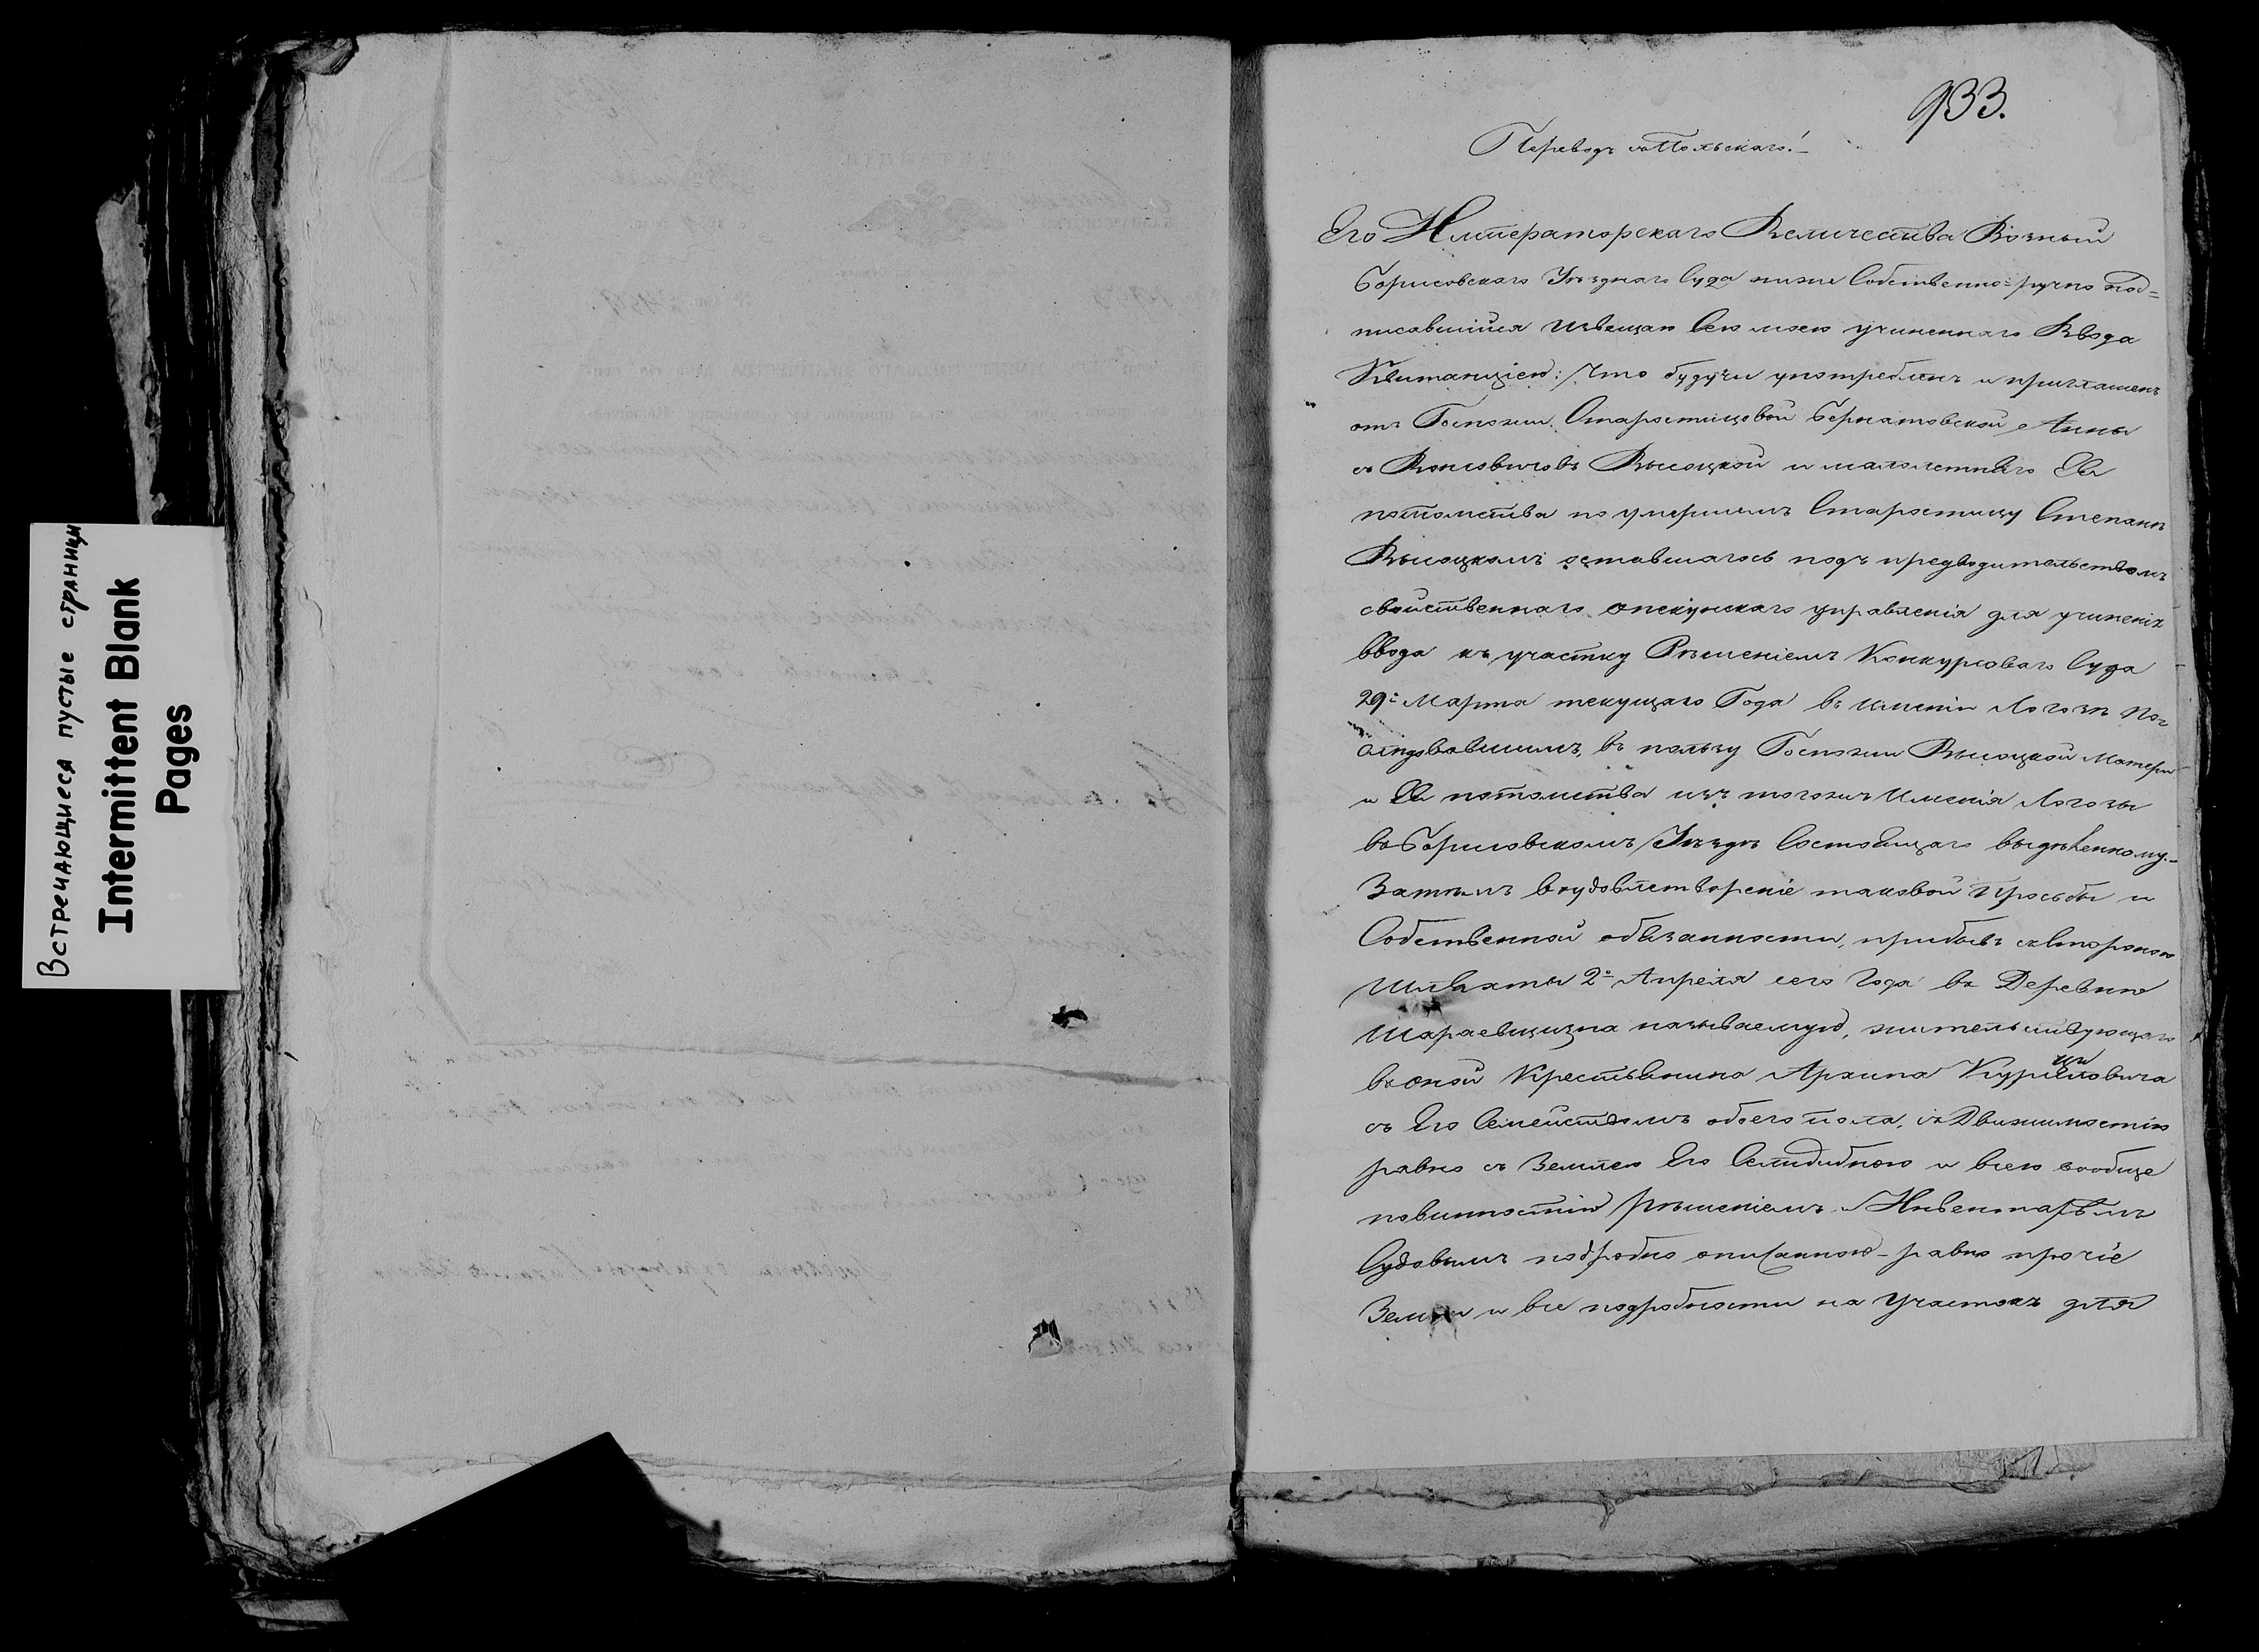 Встречающиеся пустые страницы
Intermittent Blank
Pages
933.
Переводъ съ Польскаго.
Его Императорскаго Величества Возный
Борисовскаго Уѣзднаго Суда ниже Собственно-ручно под=
писавшійся извещаю Сею моею учиненнаго Ввода
Квитанціею: Что будучи употребленъ и приглашенъ
отъ Госпожи Старостицовой Бернатовской Анны
съ Высоцкой и малолетнаго Ея
потомства по умершемъ Старостицу Степанѣ
Высоцкомъ оставшагось подъ предводительствомъ
свойственнаго опекунскаго управленія для учиненія
ввода къ участку Рѣшеніемъ Конкурсоваго Суда
29: Марта текущаго Года въ имѣніи Логозѣ по-
слѣдовавшимъ, въ пользу Госпожи Высоцкой Матери
и Ея потомства изъ тогожъ Имѣнія Логозы
въ Борисовскомъ Уѣздѣ Состоящаго выдѣленному.
Затѣмъ въ удовлетвореніе таковой Просьбы и
Собственной обязанности, прибывъ съ стороною
Шляхты 2º Апреля сего Года въ Деревню
называемую, жительствующаго
въ оной Крестьянина Архипа
съ Его Семействомъ обоего пола, съ Движимостію
равно съ Землею Его и всею вообще
повинностію рѣшеніемъ и Инвентаремъ
Судовымъ подробно описанною - равно прочіе
Земли и все подробности на Участокъ для